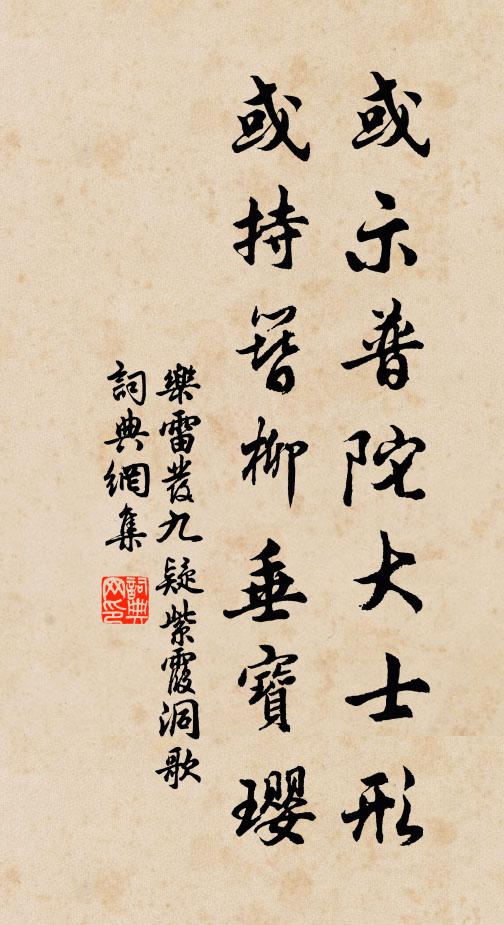 或示普陀大士形
或持簪柳垂寶瓔
樂雷發九疑紫霞洞歌
詞典網集
詞典網印